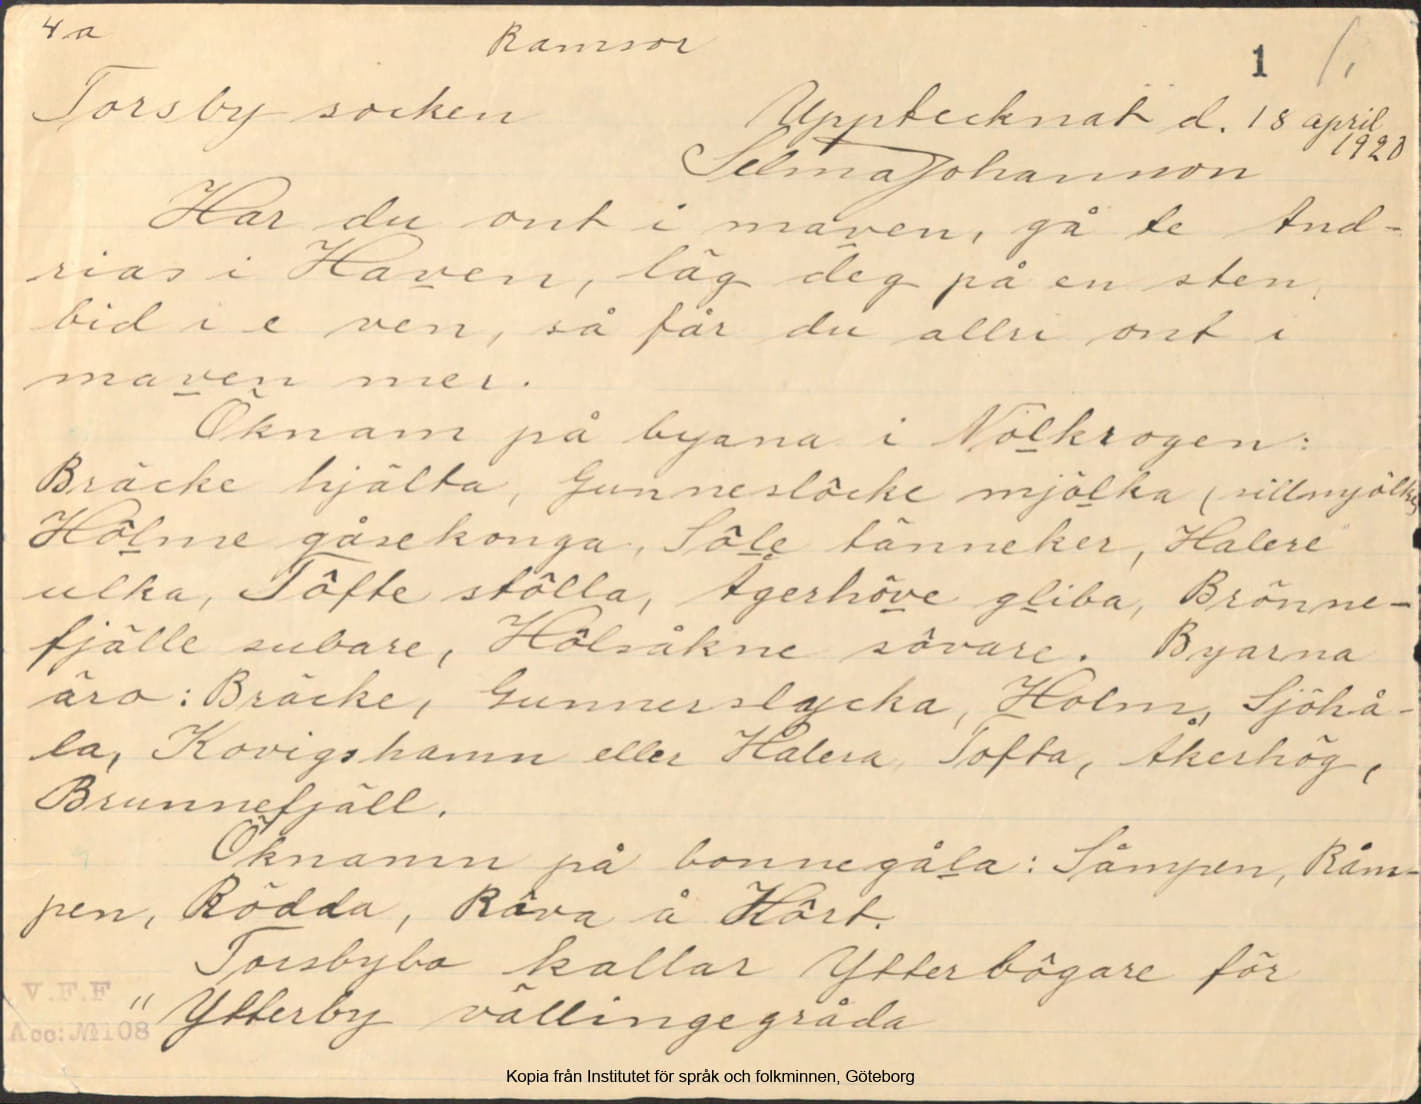 4 a
Ramsor
1
Torsby socken
Upptecknat d. 18 april
1920
Selma Johansson
Har du ont i maven, gå te And-
rias i Haven, läg deg på en sten,
bid i e ven, så får du allri ont i
maven mer.
Öknam på byana i Nölkrogen:
Bräcke hjälta, Gunneslöcke mjölka (sillmjölke)
Hôlme gåsekonga, Sôle tänneker, Halere
ulka, Tôfte stôlla, Ågerhöve gliba, Brönne-
fjälle subare, Hôlsåkne sôvare. Byarna
äro: Bräcke, Gunnerslycka, Holm, Sjöhå-
la, Kovigshamn eller Halera, Tofta, Åkerhög,
Brunnefjäll.
Öknamn på bonnegåla: Såmpen, Råm-
pen, Rödda, Räva å Hôrt.
Torsbybo kallar Ytterbögare för
" Ytterby vällingegråda
V.F.F
Acc: № 108
Kopia från Institutet för språk och folkminnen, Göteborg